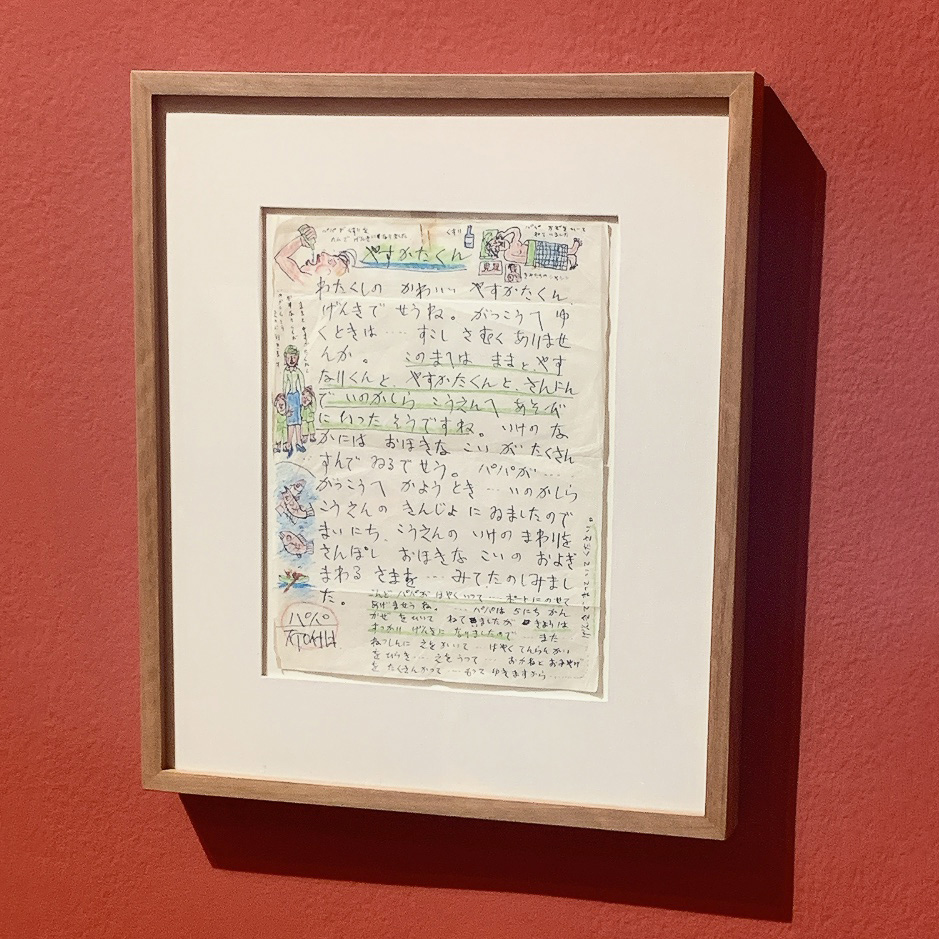 やすかたくん
くすり
わたくしの かわいい やすかたくん
げんきで せうね。 がっこうへ ゆ
くときは ‥‥ すこし さむく ありませ
んか。 このまへは ままと やす
なりくんと、 やすかたくんと、 さんにん
で いのかしら こうえんへ あそび
に いった そうですね。 いけの な
かには おほきな こい が たくさん
すんで ゐるで せう。 パパが ‥‥
がっこうへ かよう とき ‥‥ いのかしら
こうえんの きんじょ に ゐましたので
まいにち、 こうえんの いけの まわりを
さんぽし おほきな こい の およぎ
まわる さまを ‥‥ みて たのしみまし
た。
こんど パパが はやく いって ‥‥ ボートに のせて
あげませう ね。 ‥‥ パパは
がぜ を ひいて ねて ゐましたが きょうは
すっかり げんきに なりましたので ‥‥ また
ねっしんに ゑを かいて ‥‥ はやく てんらんかい
を ひらき ‥‥ ゑを うって ‥‥ おかねと おみやげ
を たくさん かって ‥‥ もって ゆきますから ‥‥‥
パパ